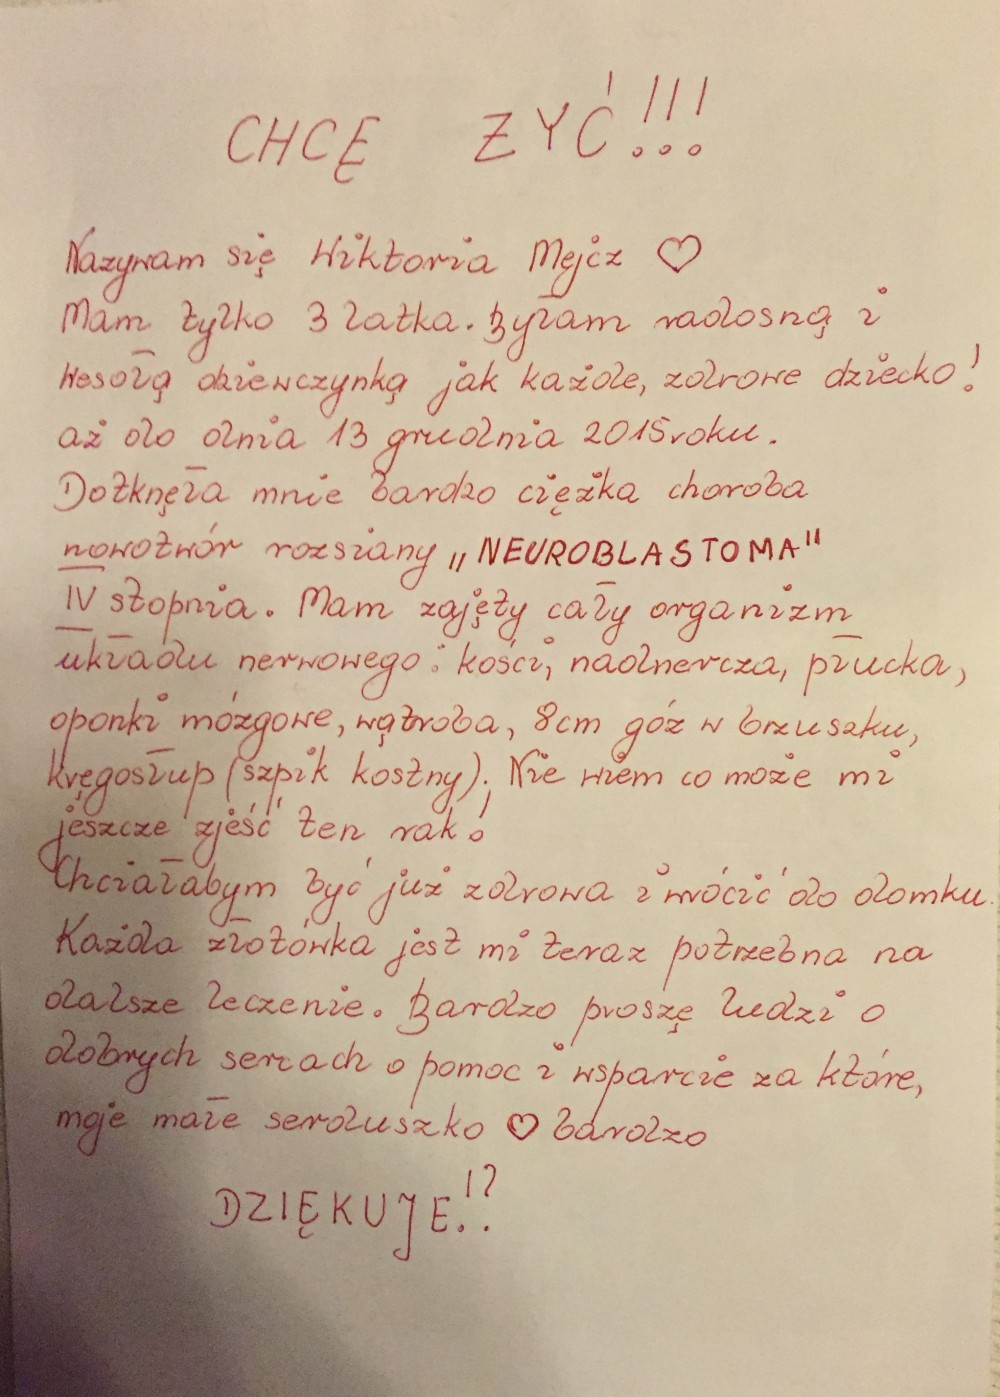 CHCĘ ŻYĆ!!!
Nazywam się Wiktoria Mejcz ♡
Mam tylko 3 latka. Byłam radosną i
wesołą dziewczynką jak każde, zdrowe dziecko!
aż do dnia 13 grudnia 2015 roku.
Dotknęła mnie bardzo ciężka choroba
nowotwór rozsiany „NEUROBLASTOMA"
IV stopnia. Mam zajęty cały organizm
układu nerwowego: kości, nadnercza, płucka,
oponki mózgowe, wątroba, 8cm góz w brzuszku,
kręgosłup (szpik kostny). Nie wiem co może mi
jeszcze zjeść ten rak!
Chciałabym być już zdrowa i wrócić do domku.
Każda złotówka jest mi teraz potrzebna na
dalsze leczenie. Bardzo proszę ludzi o
dobrych sercach o pomoc i wsparcie za które,
moje małe serduszko ♡ bardzo
DZIĘKUJE!?